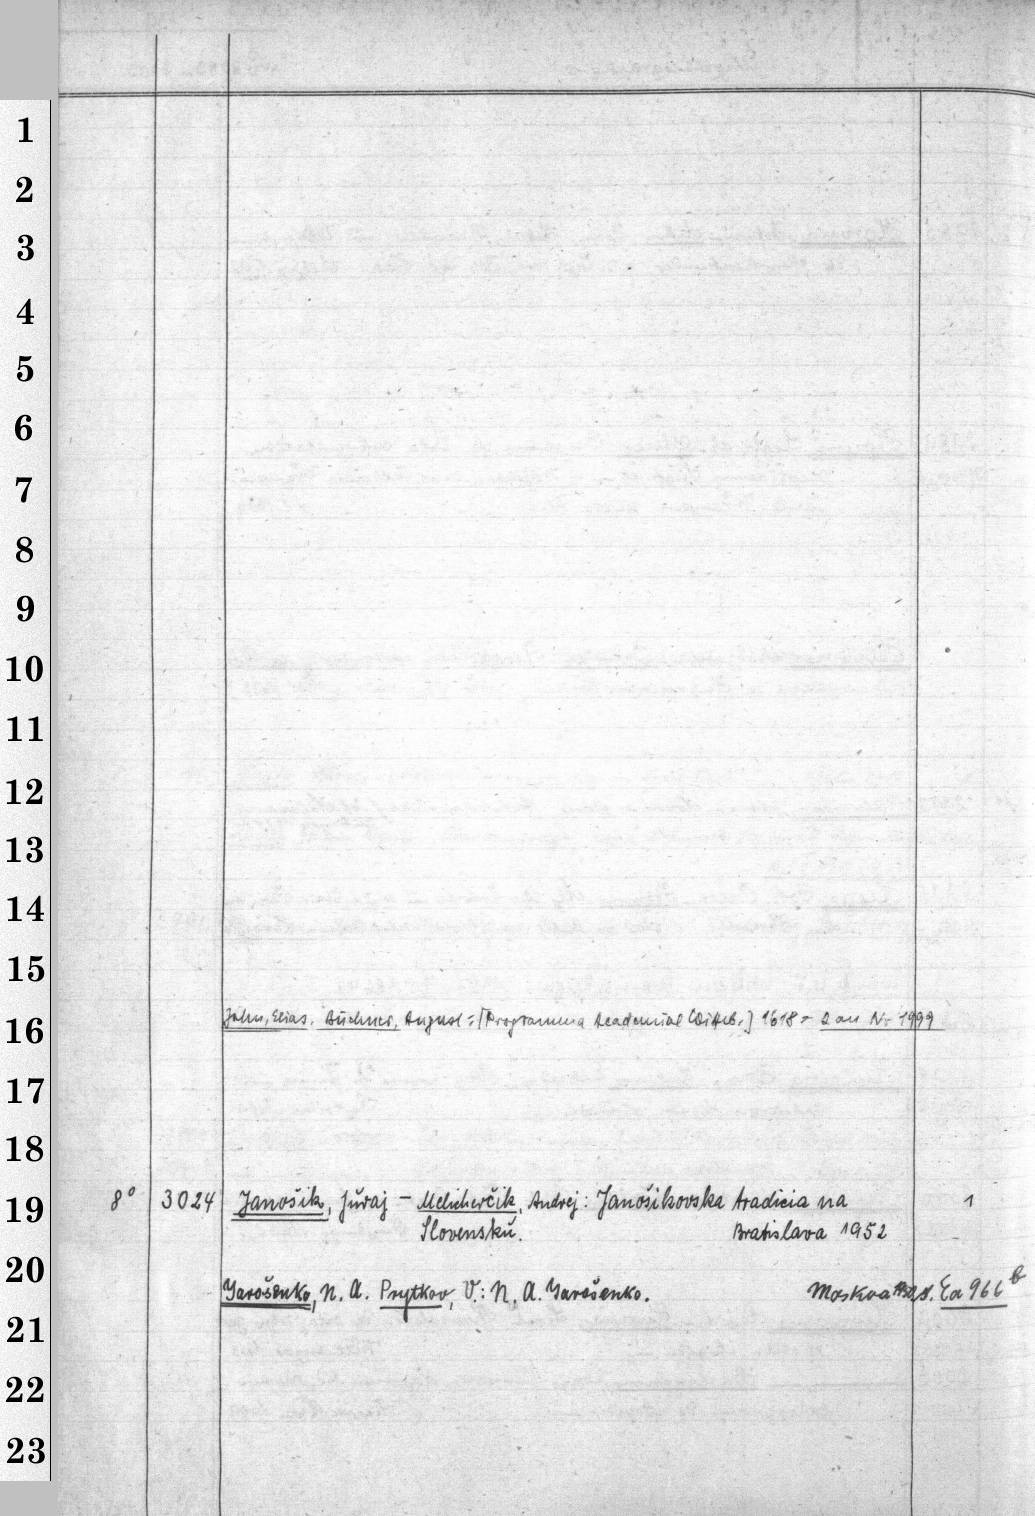 1
2
3
4
5
6
7
8
9
10
11
12
13
14
15
16
Jahn, Elias. Büchner, August: [Programma Academiae Witteb.] 1618 = 2 an Nr 1999
17
18
19
8° 3024 Janošik, Jŭraj - Melicherčik, Andrej: Janošikovska tradicia na 1
Slovenskŭ. Bratislava 1952
20
Yarošenko, N. A. Prytkov, V.: N. A. Yarošenko. Moskva s. Ea 966 b
21
22
23